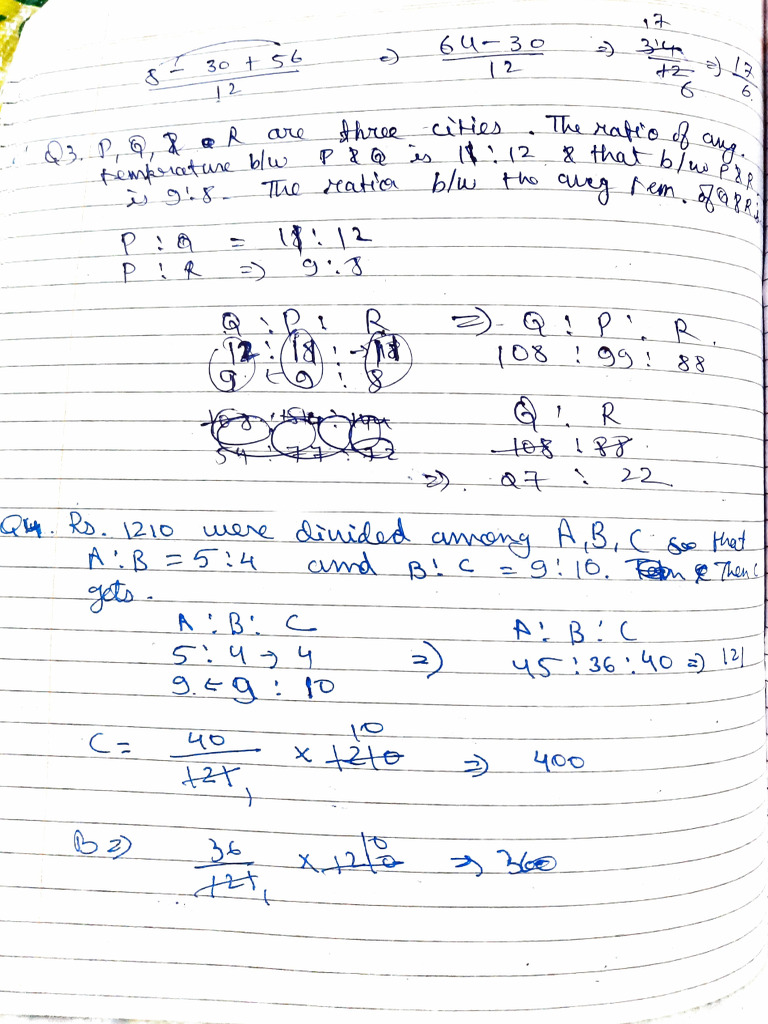 8 - 30 + 56 / 12 => 64 - 30 / 12 => 17 34 / 12 6 => 17/6
Q3. P, Q, R are three cities. The ratio of avg.
temperature b/w P & Q is 11 : 12 & that b/w P & R
is 9:8. The ratio b/w the avg tem. of Q & R is
P : Q = 11 : 12
P : R => 9 : 8
Q : P : R => Q : P : R.
12 : 11 : → 11 108 : 99 : 88
9 ← 9 : 8
Q : R
54 : 77 : 72 108 : 88.
=> 27 : 22
Q4. Rs. 1210 were divided among A, B, C so that
A : B = 5 : 4 and B : C = 9 : 10. Then C
gets.
A : B : C A : B : C
5 : 4 → 4 => 45 : 36 : 40 => 121
9 ← 9 : 10
C = 40 / 121 1 × 1210 10 => 400
B => 36 / 121 1 × 1210 10 => 360